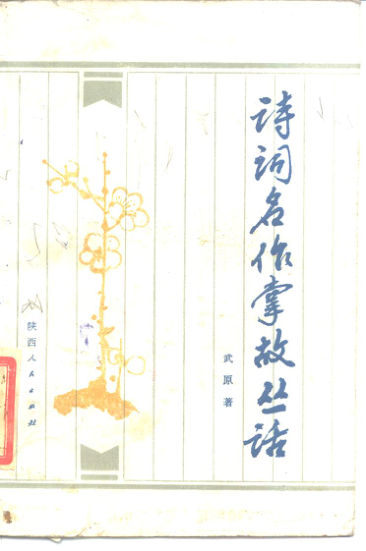 诗词名作掌故丛话
武原著
陕西人民出版社